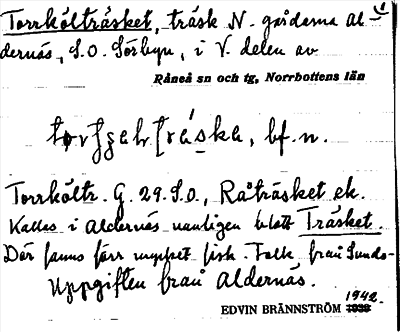 Torrkölträsket, träsk N. gårdarna Al-
dernäs, S.O. Sörbyn, i V. delen av
Råneå sn och tg, Norrbottens län
bf. n.
Torrköltr. G. 29. S.O., Råträsket ek.
Kallas i Aldernäs vanligen blott Träsket.
Där fanns förr mycket fisk. Folk från Sunds-
Uppgiften från Aldernäs.
EDVIN BRÄNNSTRÖM 1942.